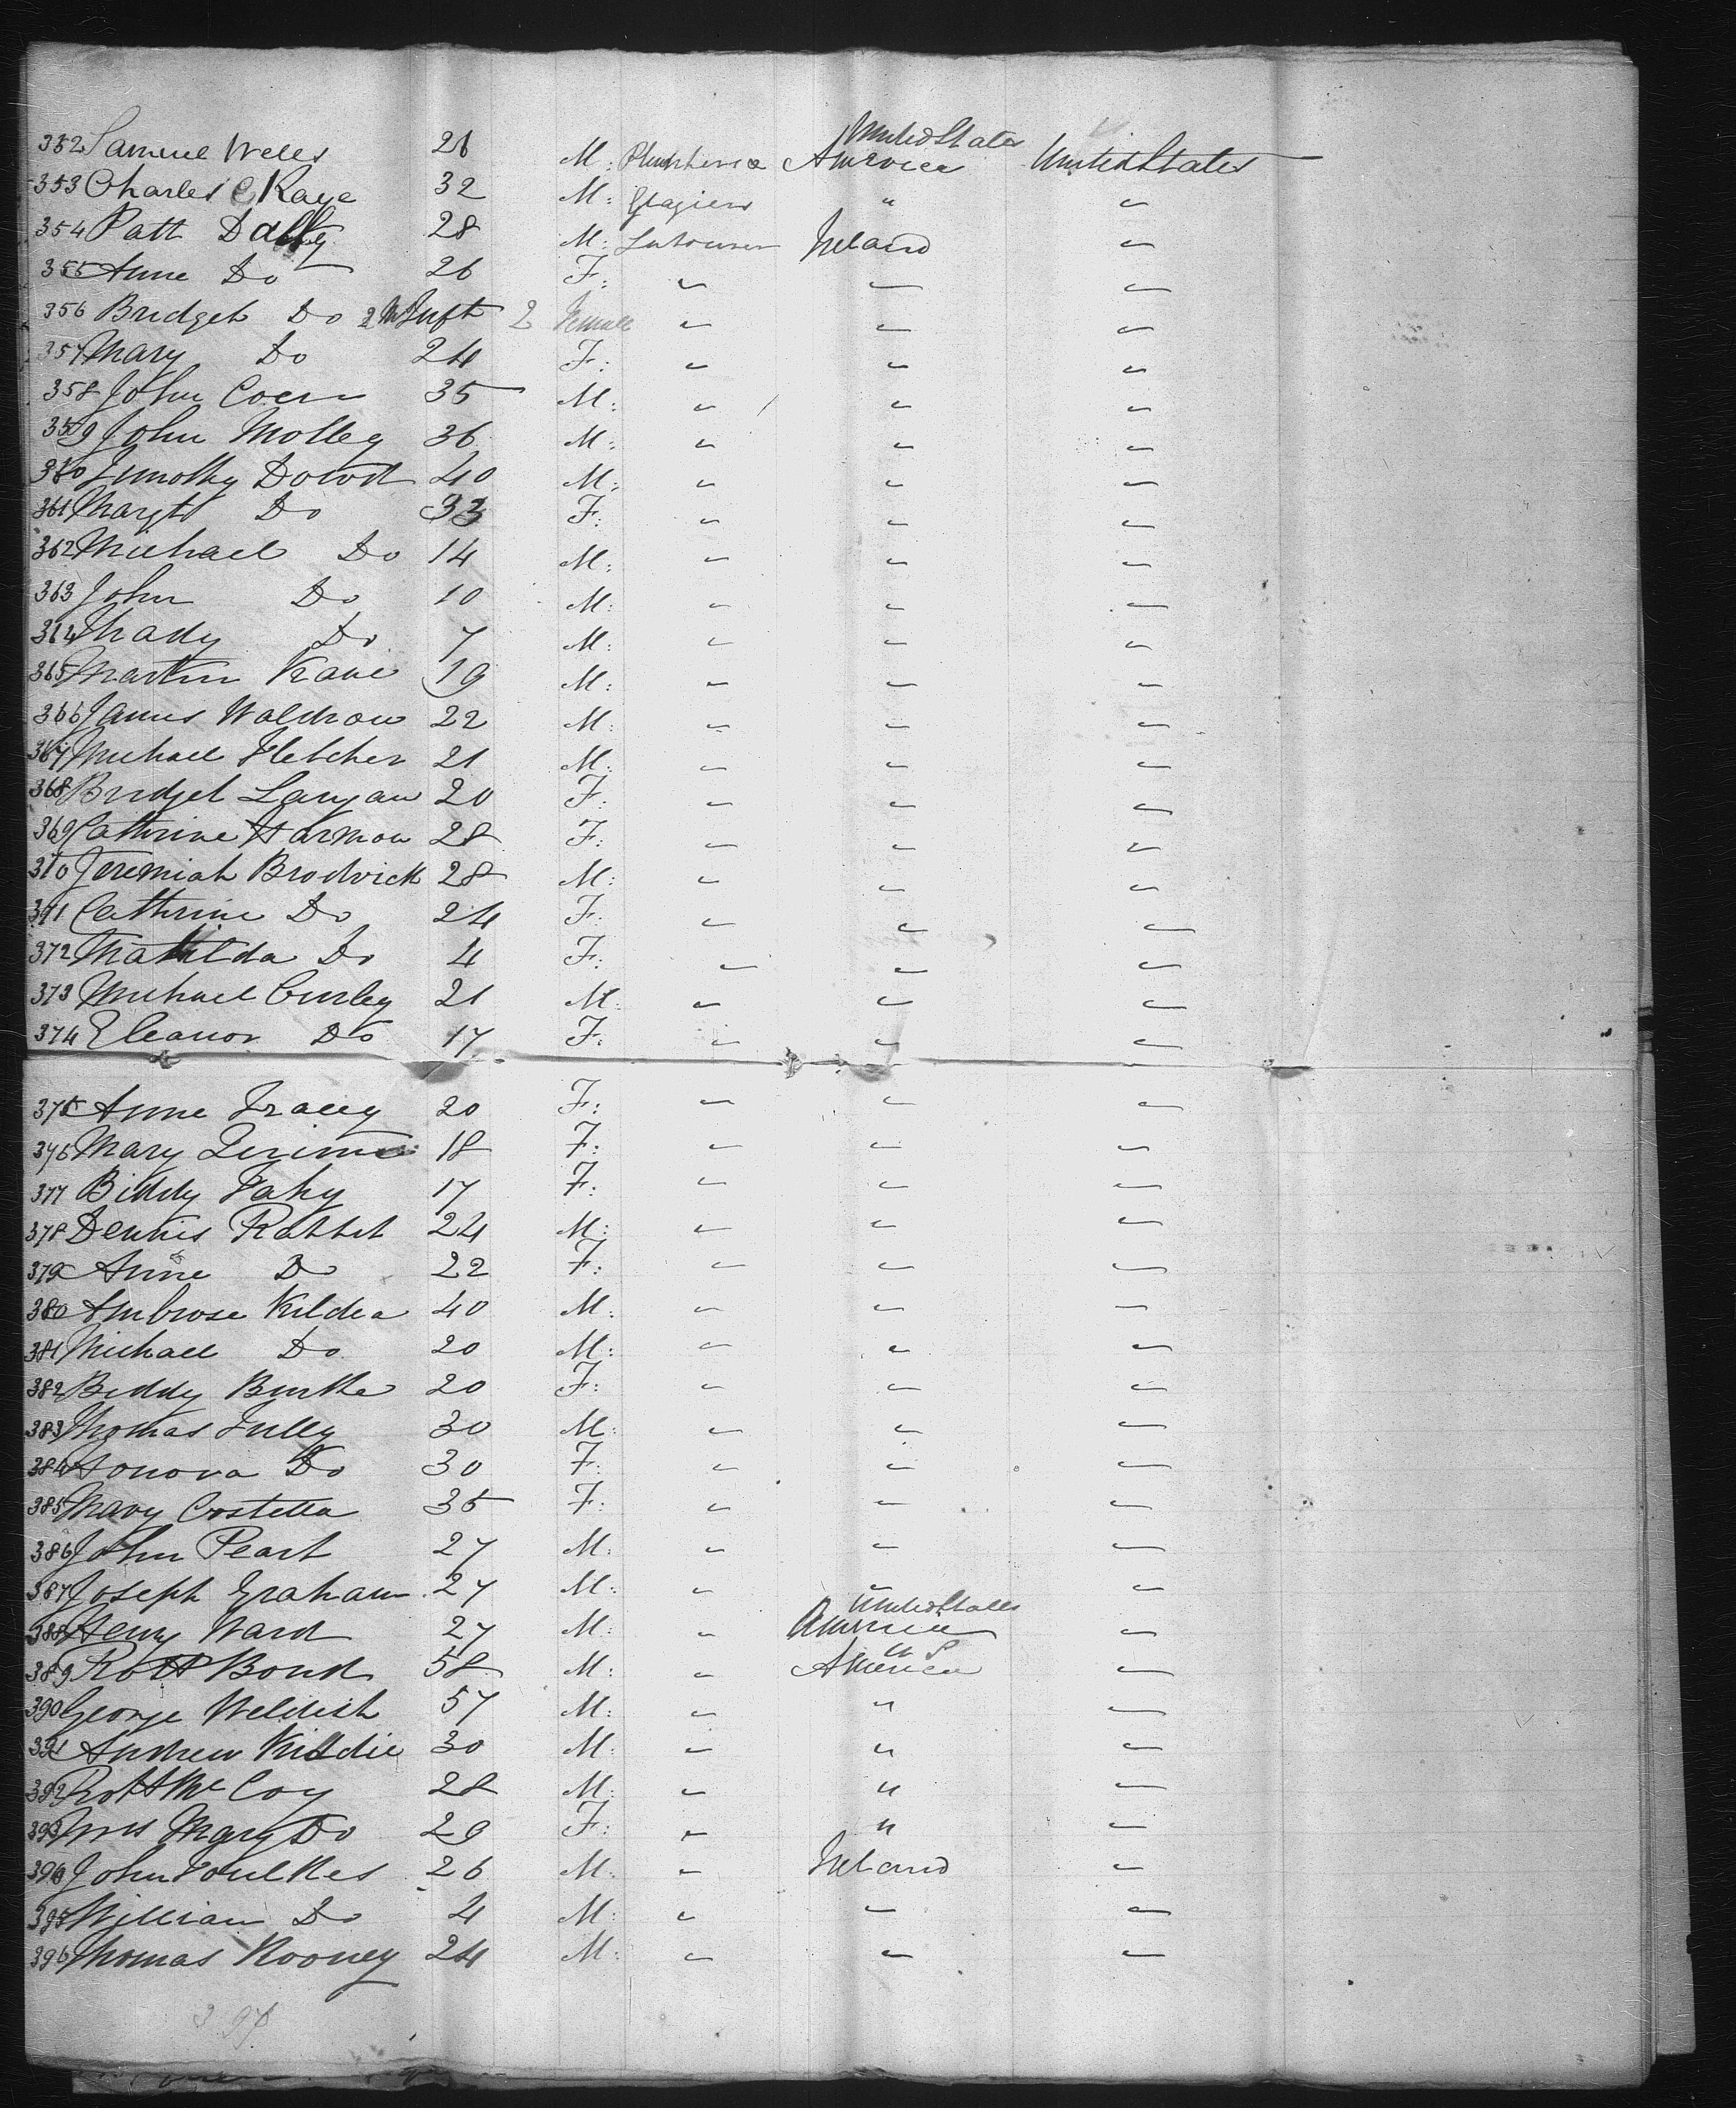 352 Samuel Wells 26 M: America United States United States
353 Charles Kaye 32 M: Glaziers " "
354 Patt Dally 28 M: Labourer Ireland "
355 Anne Do 26 F: " " "
356 Bridget Do 2 M Inft 2 Female " " "
357 Mary Do 24 F: " " "
358 John Coen 35 M: " " "
359 John Molley 36 M: " " "
360 Timothy Dowd 40 M: " " "
361 Margt Do 33 F: " " "
362 Michael Do 14 M: " " "
363 John Do 10 M: " " "
364 Thady Do 7 M: " " "
365 Martin Kane 19 M: " " "
366 James Waldron 22 M: " " "
367 Michael Fletcher 21 M: " " "
368 Bridget Langan 20 F: " " "
369 Cathrine Harmon 28 F: " " "
370 Jeremiah Brodrick 28 M: " " "
371 Cathrine Do 24 F: " " "
372 Matilda Do 4 F: " " "
373 Michael Curley 21 M: " " "
374 Eleanor Do 17 F: " " "
375 Anne Tracey 20 F: " " "
376 Mary 18 F: " " "
377 Biddy Fahy 17 F: " " "
378 Dennis Rabbit 24 M: " " "
379 Anne Do 22 F: " " "
380 Ambrose Kildea 40 M: " " "
381 Michael Do 20 M: " " "
382 Biddy Burke 20 F: " " "
383 Thomas Tully 30 M: " " "
384 Honora Do 30 F: " " "
385 Mary Costella 35 F: " " "
386 John Peart 27 M: " " "
387 Joseph Graham 27 M: " " "
388 Henry Ward 27 M: " America United States "
389 Robt Bond 58 M: " America U S "
390 George Weldish 57 M: " " "
391 Andrew 30 M: " " "
392 Robt McCoy 28 M: " " "
393 Mrs Mary Do 29 F: " " "
394 John Foulkes 26 M: " Ireland "
395 William Do 4 M: " " "
396 Thomas Rooney 24 M: " " "